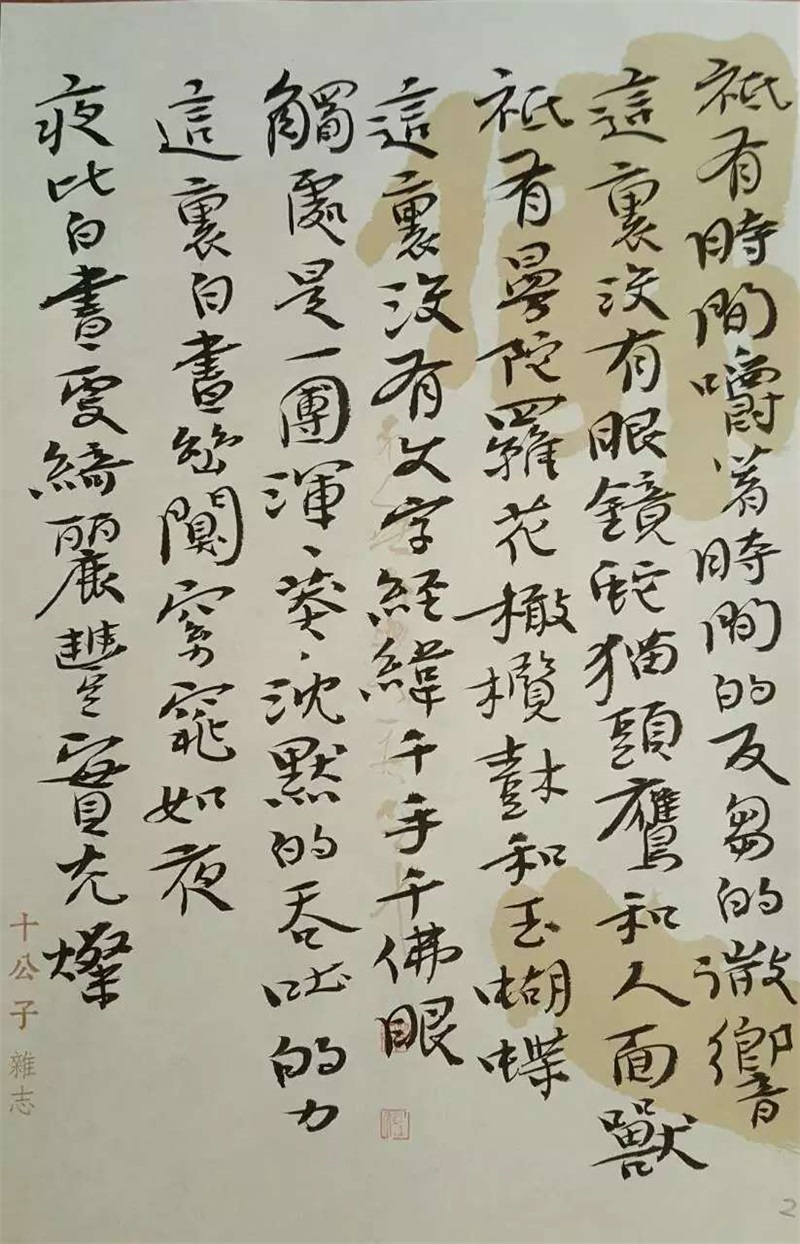 祇有時間嚼着時間的反芻的微響
這裏沒有眼鏡蛇猫頭鷹和人面獸
祇有曼陀羅花橄欖樹和玉蝴蝶
這裏沒有文字經緯千手千佛眼
觸處是一團渾、莽、沈默的吞吐的力
這裏白晝幽闃窈窕如夜
夜比白晝、更綺麗豐實光燦
十公子雜志
2